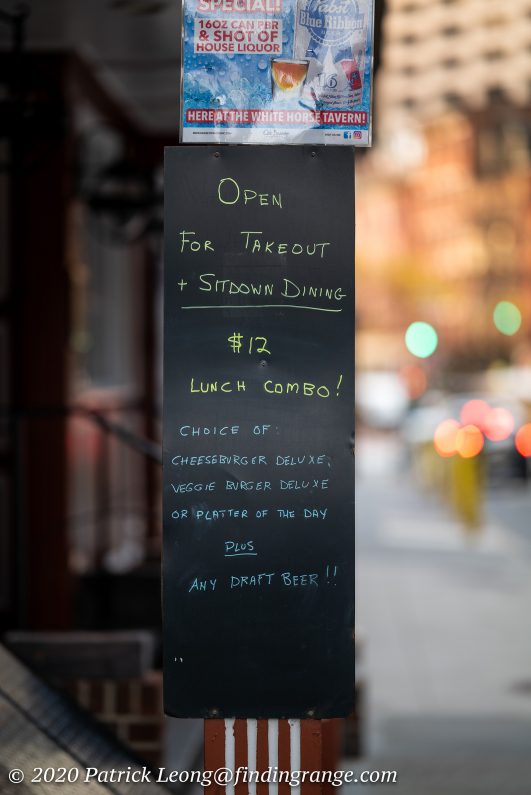 SPECIAL!
16OZ CAN PBR
& SHOT OF
HOUSE LIQUOR
Pabst
Blue Ribbon
16
HERE AT THE WHITE HORSE TAVERN!
OPEN
FOR TAKEOUT
+ SITDOWN DINING
$12
LUNCH COMBO!
CHOICE OF:
CHEESEBURGER DELUXE,
VEGGIE BURGER DELUXE
OR PLATTER OF THE DAY
PLUS
ANY DRAFT BEER!!
© 2020 Patrick Leong@findingrange.com